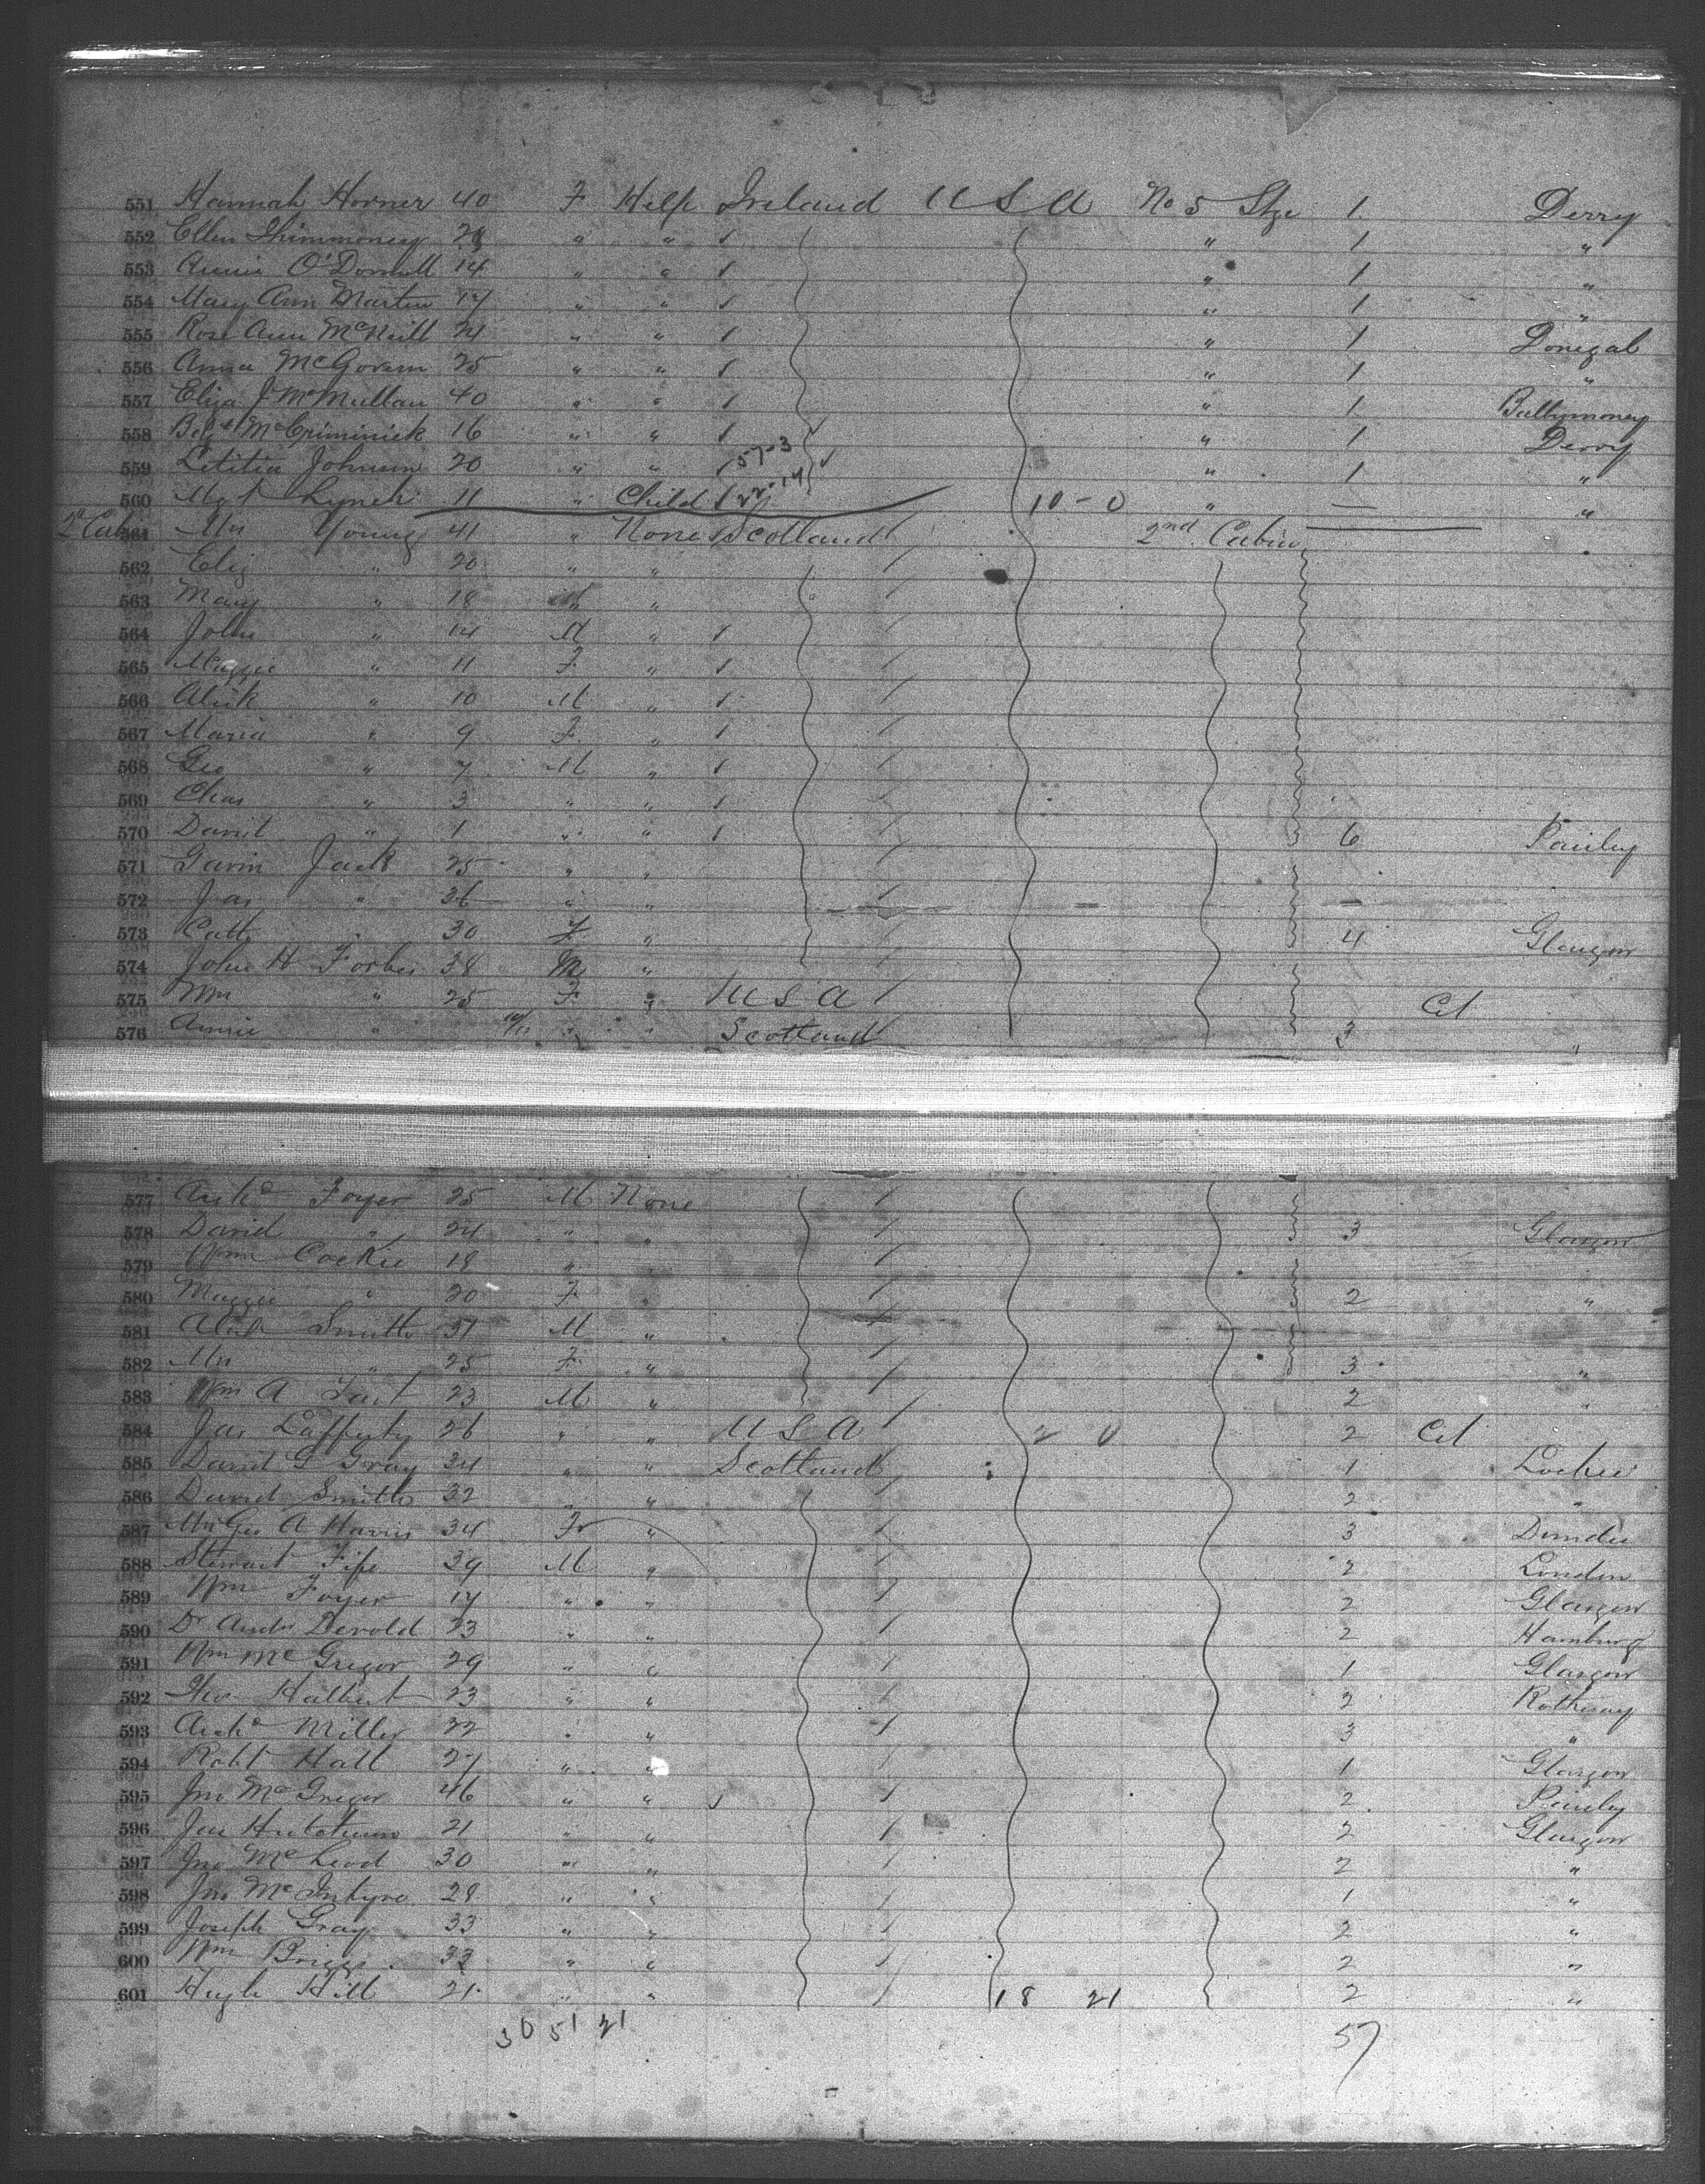 551 Hannah Horner 40 F Help Ireland U S A No 5 Stge 1 Derry
552 Ellen 1 "
553 Annie O'Donnell 14 " " " 1 "
554 Mary Ann Martin 17 " " " 1 "
555 Rose Ann McNeill 21 " " " 1 Donegal
556 Anna McGovern 25 " " " 1 "
557 Eliza J McMullan 40 " " " 1 Ballymoney
558 16 " " " 1 Derry
559 Letitia Johnson 20 " " " 1 "
560 Mgt Lynch 11 " Child 10-0 " — "
2d Cab 561 Mrs Young 41 " None Scotland 2nd Cabin
562 Eliz " 20 " "
563 Mary " 18 " "
564 John " 14 M "
565 Maggie " 11 F "
566 Alick " 10 M "
567 Maria " 9 F "
568 Geo " 7 M "
569 Chas " 3 " "
570 David " 1 " " 6 Paisley
571 Gavin Jack 25 " "
572 Jas " 36 " "
573 Cath " 30 F " 4 Glasgow
574 John H Forbes 38 M "
575 Wm " 25 F " U S A
576 Annie " 10/11 " " Scotland 3 "
577 Archd Foyer 25 M None
578 David " 24 " " 3 Glasgow
579 Wm Cockie 18 "
580 Maggie " 20 F " 2 "
581 Alick Smith 31 M "
582 Mrs " 25 F " 3 "
583 Wm A 23 M " 2 "
584 Jas Lafferty 26 " " U S A 2 0 2
585 David G Gray 34 " " Scotland 1 Lochee
586 David Smith 32 " " 2 "
587 Mrs Geo A Harris 34 F " 3 Dundee
588 Stewart Fife 39 M " 2 London
589 Wm Foyer 17 " " 2 Glasgow
590 Dr Andw Devold 23 " " 2 Hamburg
591 Wm McGregor 29 " " 1 Glasgow
592 Halbert 23 " " 2 Rothesay
593 Archd Miller 22 " " 3 "
594 Robt Hall 27 " " 1 Glasgow
595 Jno McGregor 46 " " 2 Paisley
596 Jas Hutcheson 21 " " 2 Glasgow
597 Jno McLeod 30 " " 2 "
598 Jno McIntyre 28 " " 1 "
599 Joseph Gray 33 " " 2 "
600 Wm Briggs 33 " " 2 "
601 Hugh Hill 21 " " 18 21 2 "
30 51 21 57